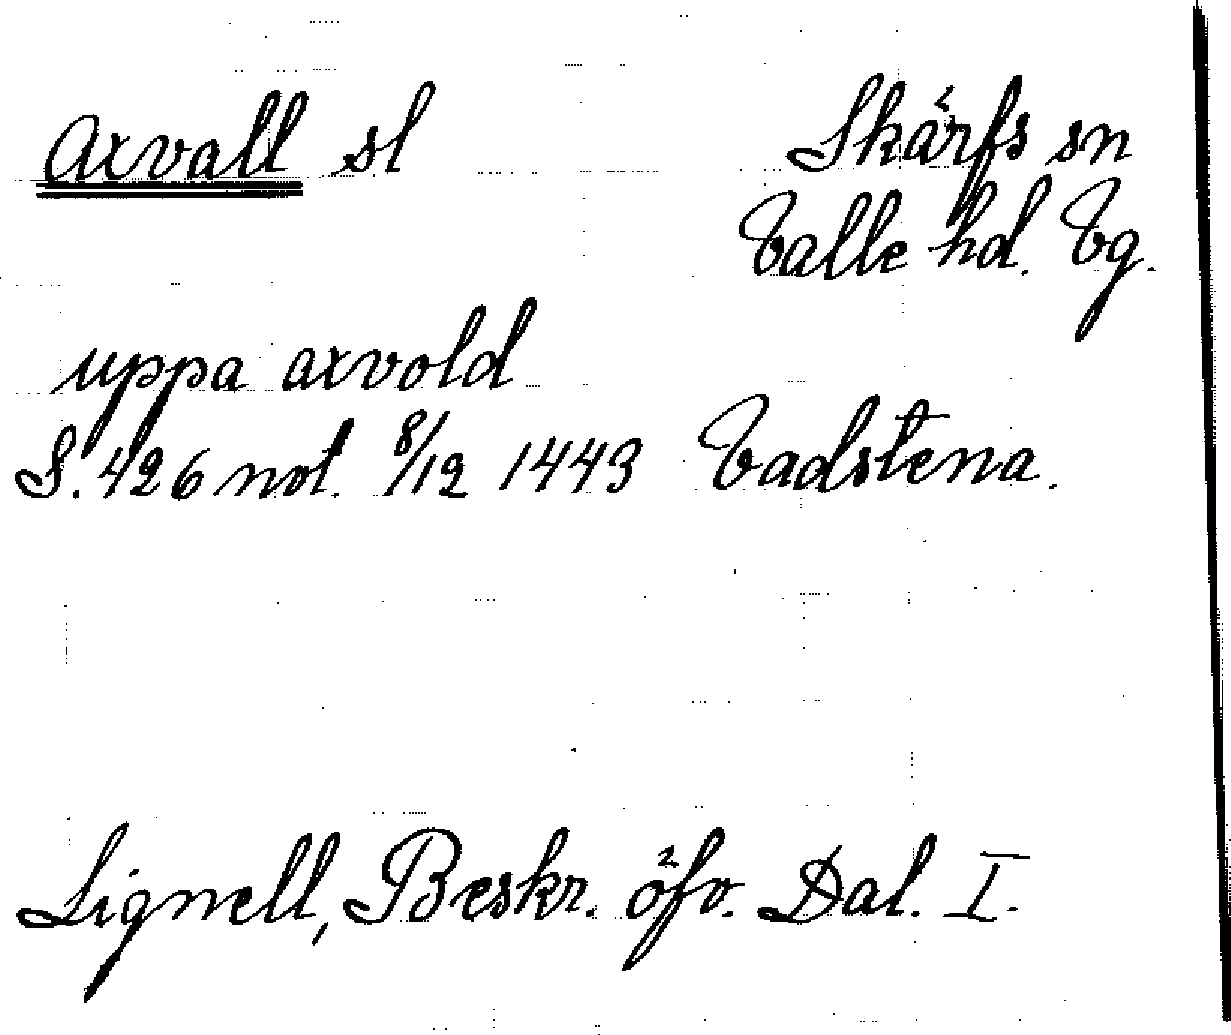 Axvall sl
Skärfs sn
Valle hd. Vg.
uppa axvold
S. 426 not. 8/12 1443 Vadstena.
Lignell, Beskr. öfv. Dal. I.